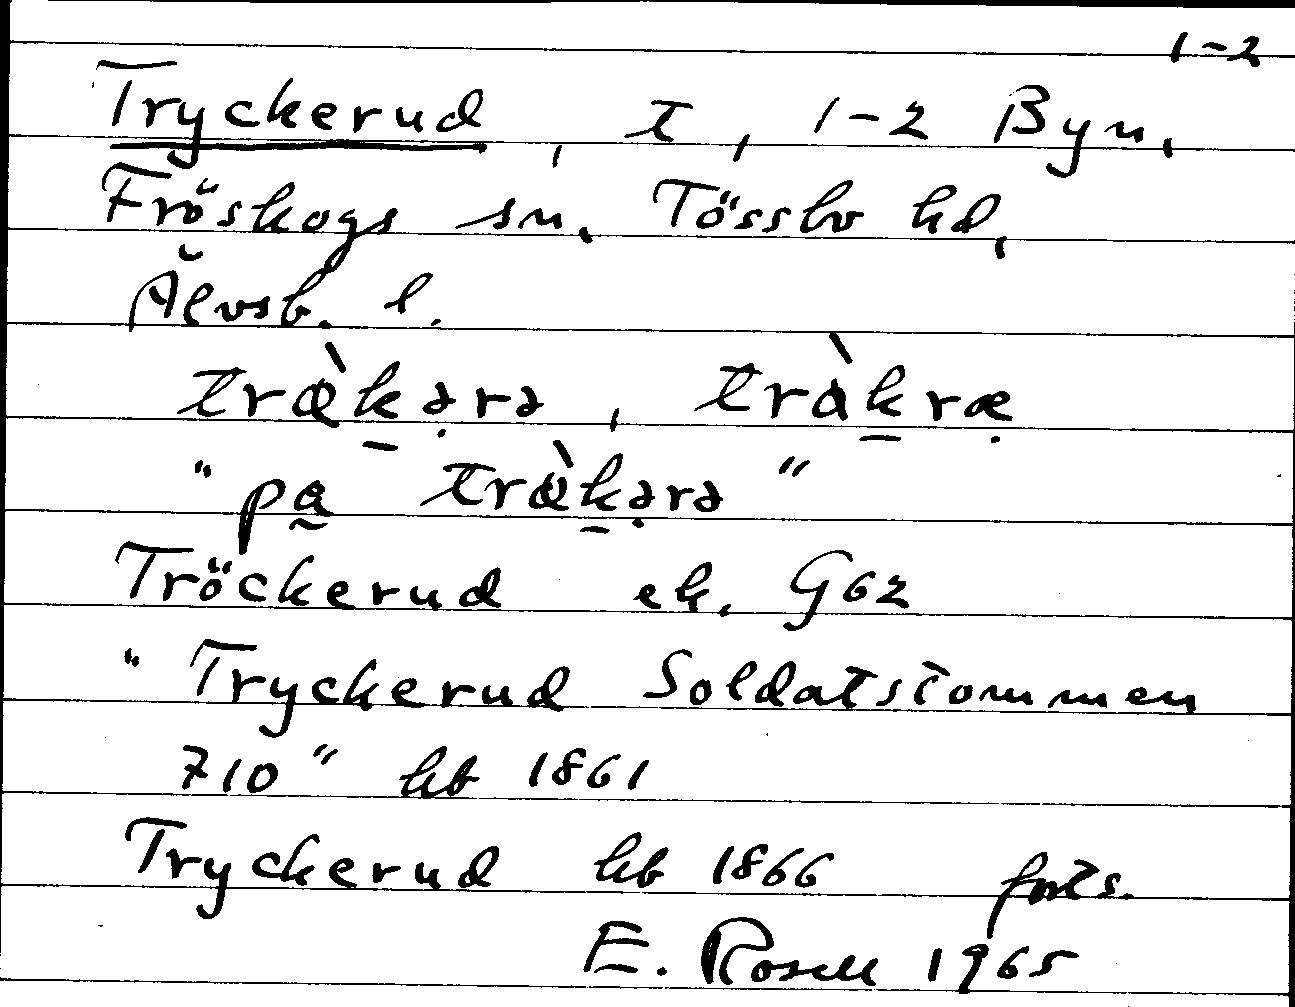 1-2
Tryckerud, t, 1-2 Byn,
Fröskogs sn. Tössbo hd,
Älvsb. l.
træ̀kərə, tràkræ
"pa træ̀kərə"
Tröckerud ek. G62
"Tryckerud Soldatstommen
710" hb 1861
Tryckerud hb 1866 forts.
E. Rosell 1965